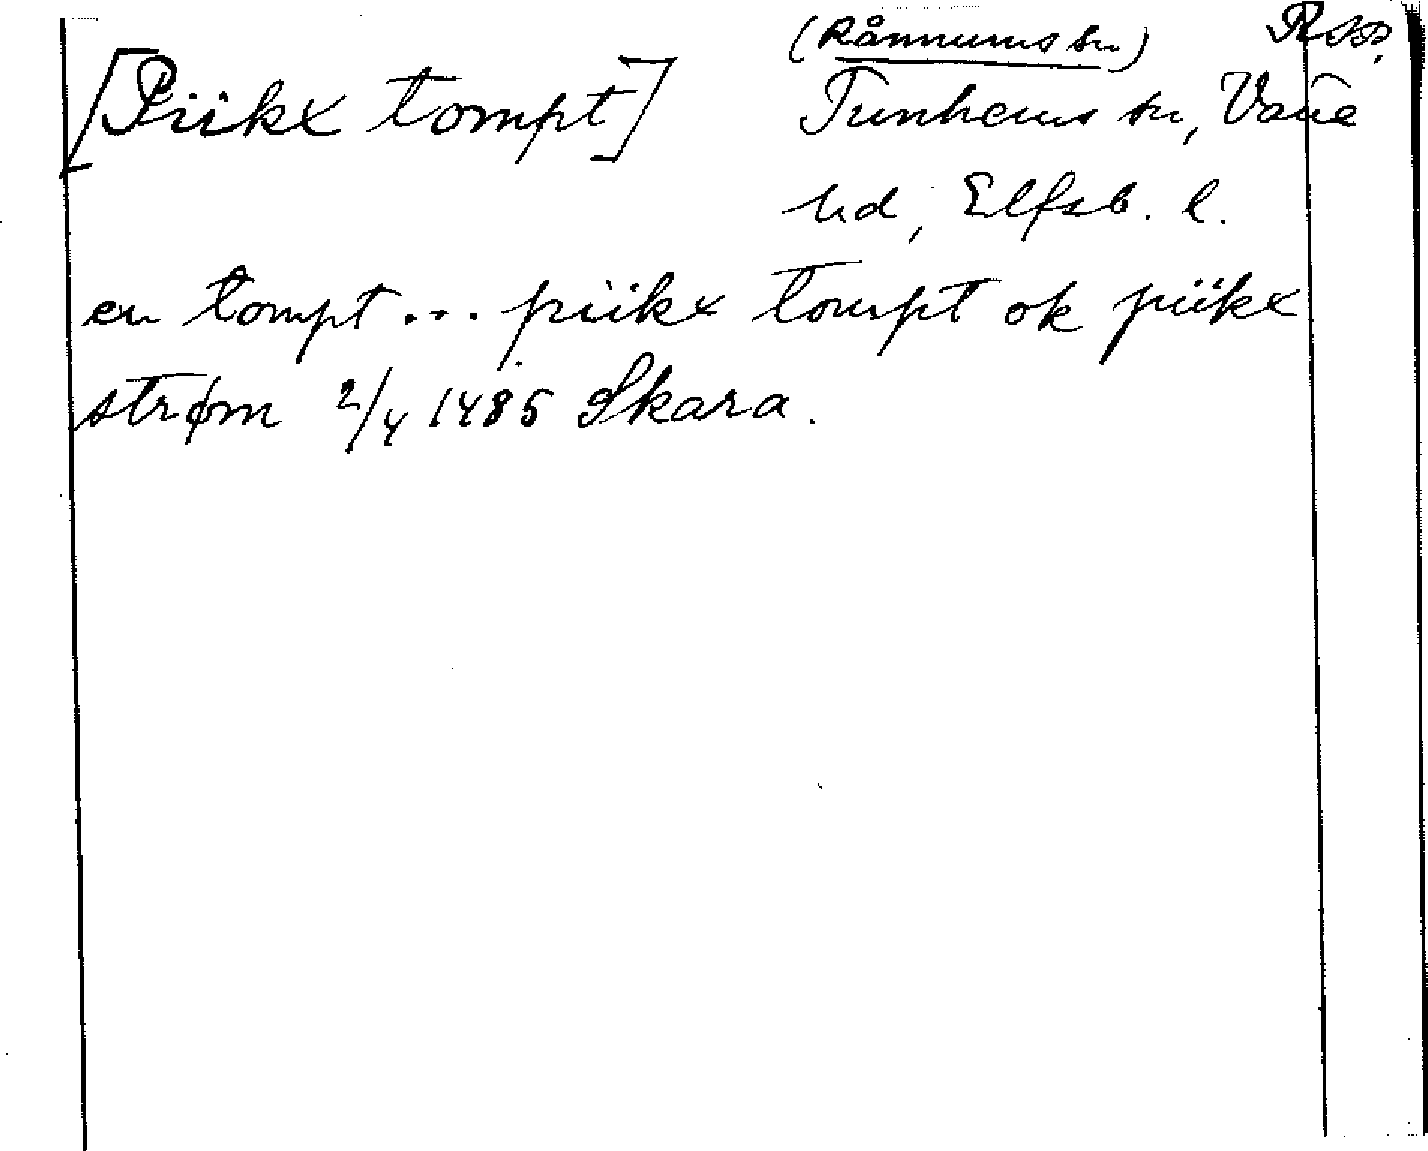 (Rånnums sn) RAP.
[Piikx tompt] Tunhems sn, Väne
hd, Elfsb. l.
en tompt... piikx tompt ok piikx
strøm 2/4 1485 Skara.